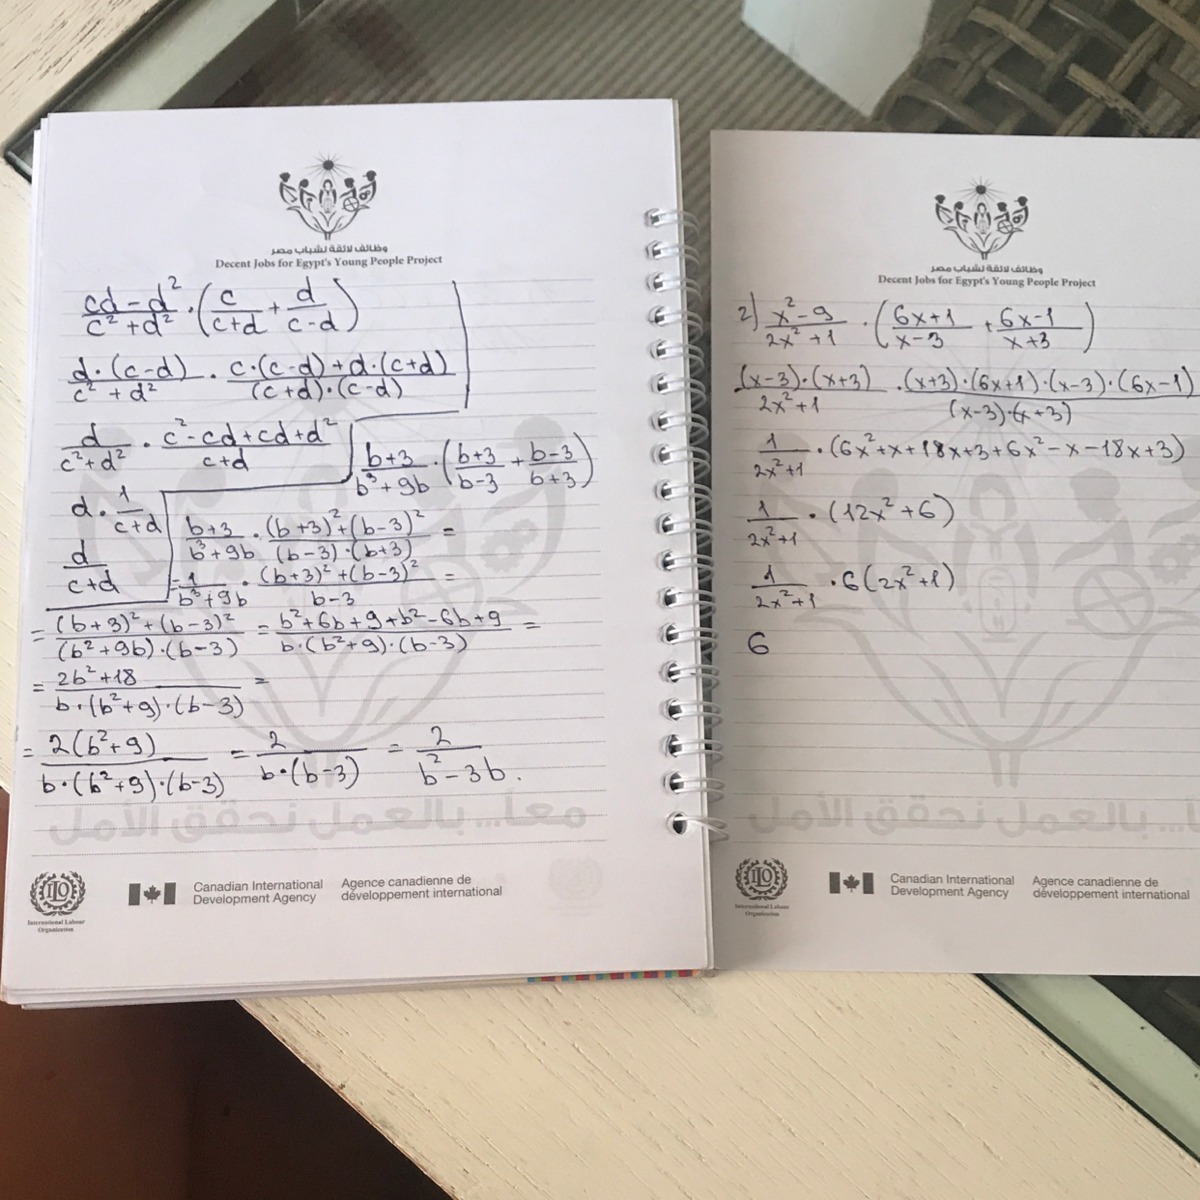 وظائف لائقة لشباب مصر
Decent Jobs for Egypt's Young People Project
(cd-d²)/(c²+d²) · (c/(c+d) + d/(c-d))
(d·(c-d))/(c²+d²) · (c·(c-d)+d·(c+d))/((c+d)·(c-d))
d/(c²+d²) · (c²-cd+cd+d²)/(c+d)
d · 1/(c+d)
d/(c+d)
(b+3)/(b³+9b) · ((b+3)/(b-3) + (b-3)/(b+3))
(b+3)/(b³+9b) · ((b+3)²+(b-3)²)/((b-3)·(b+3)) =
= 1/(b³+9b) · ((b+3)²+(b-3)²)/(b-3) =
= ((b+3)²+(b-3)²)/((b²+9b)·(b-3)) = (b²+6b+9+b²-6b+9)/(b·(b²+9)·(b-3)) =
= (2b²+18)/(b·(b²+9)·(b-3)) =
= (2(b²+9))/(b·(b²+9)·(b-3)) = 2/(b·(b-3)) = 2/(b²-3b).
معاً... بالعمل نحقق الأمل
International Labour
Organization
Canadian International
Development Agency
Agence canadienne de
développement international
وظائف لائقة لشباب مصر
Decent Jobs for Egypt's Young People Project
2) (x²-9)/(2x²+1) · ((6x+1)/(x-3) + (6x-1)/(x+3))
((x-3)·(x+3))/(2x²+1) · ((x+3)·(6x+1)·(x-3)·(6x-1))/((x-3)·(x+3))
1/(2x²+1) · (6x²+x+18x+3+6x²-x-18x+3)
1/(2x²+1) · (12x²+6)
1/(2x²+1) · 6(2x²+1)
6
...بالعمل نحقق الأمل
International Labour
Organization
Canadian International
Development Agency
Agence canadienne de
développement international